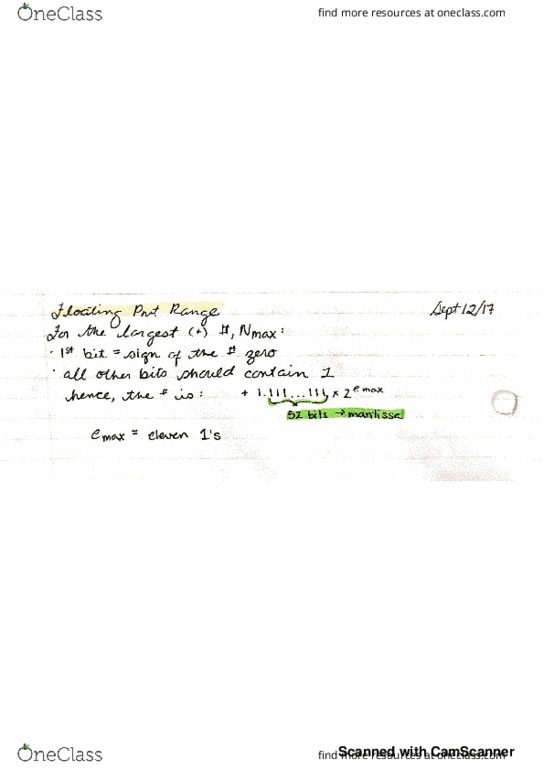 OneClass
find more resources at oneclass.com
Floating Pnt Range
Sept 12/17
For the largest (+) #, Nmax:
· 1st bit = sign of the # zero
· all other bits should contain 1
hence, the # is: + 1.111...111, × 2^e max
52 bits → mantissa
emax = eleven 1's
OneClass
find more resources at oneclass.com
Scanned with CamScanner